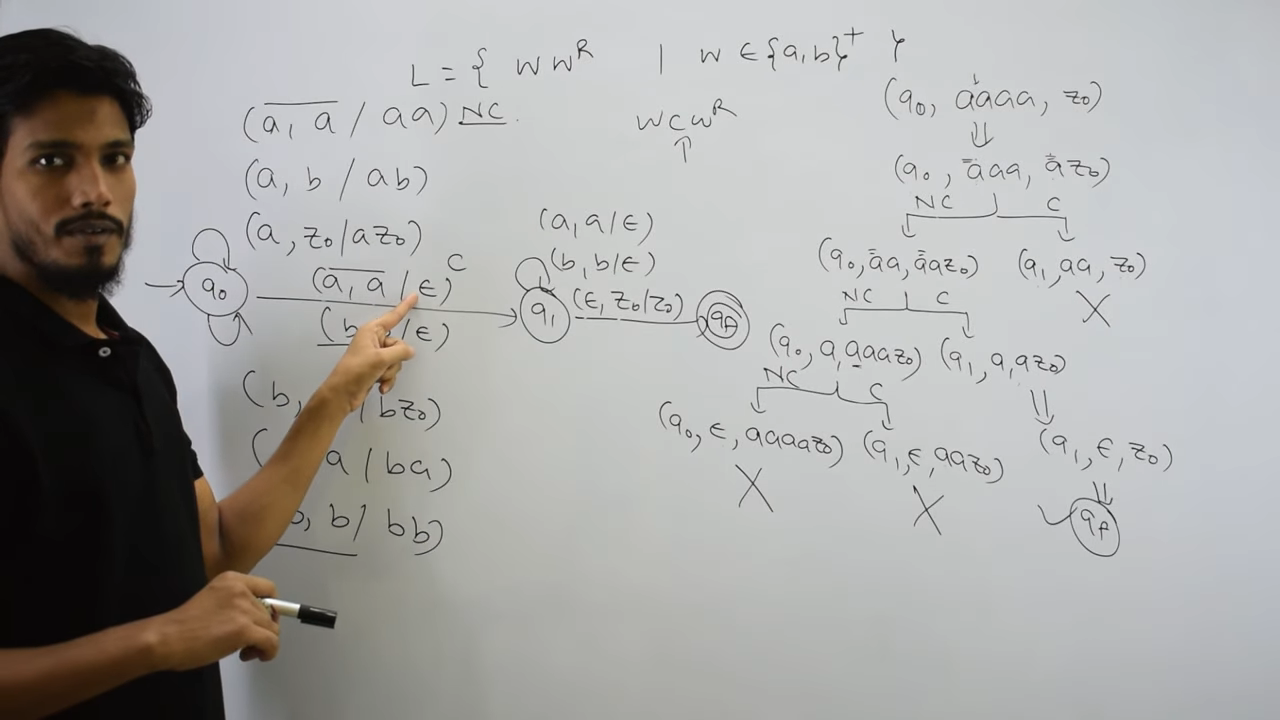 L = { w w^R | w ∈ {a,b}^+ }
w c w^R
↑
(a, a / aa) NC
(a, b / ab)
(a, z₀ / az₀)
q₀
(a, a / ε) C
(b / ε)
(b, / bz₀)
( a / ba)
b, b / bb)
(a, a / ε)
(b, b / ε)
q₁
(ε, z₀ / z₀)
qf
(q₀, aaaa, z₀)
⇓
(q₀, aaa, az₀)
NC C
(q₀, aa, aaz₀) (q₁, aa, z₀)
NC C X
(q₀, a, aaaz₀) (q₁, a, az₀)
NC C ⇓
(q₀, ε, aaaaz₀) (q₁, ε, aaz₀) (q₁, ε, z₀)
X X ⇓
✓ qf